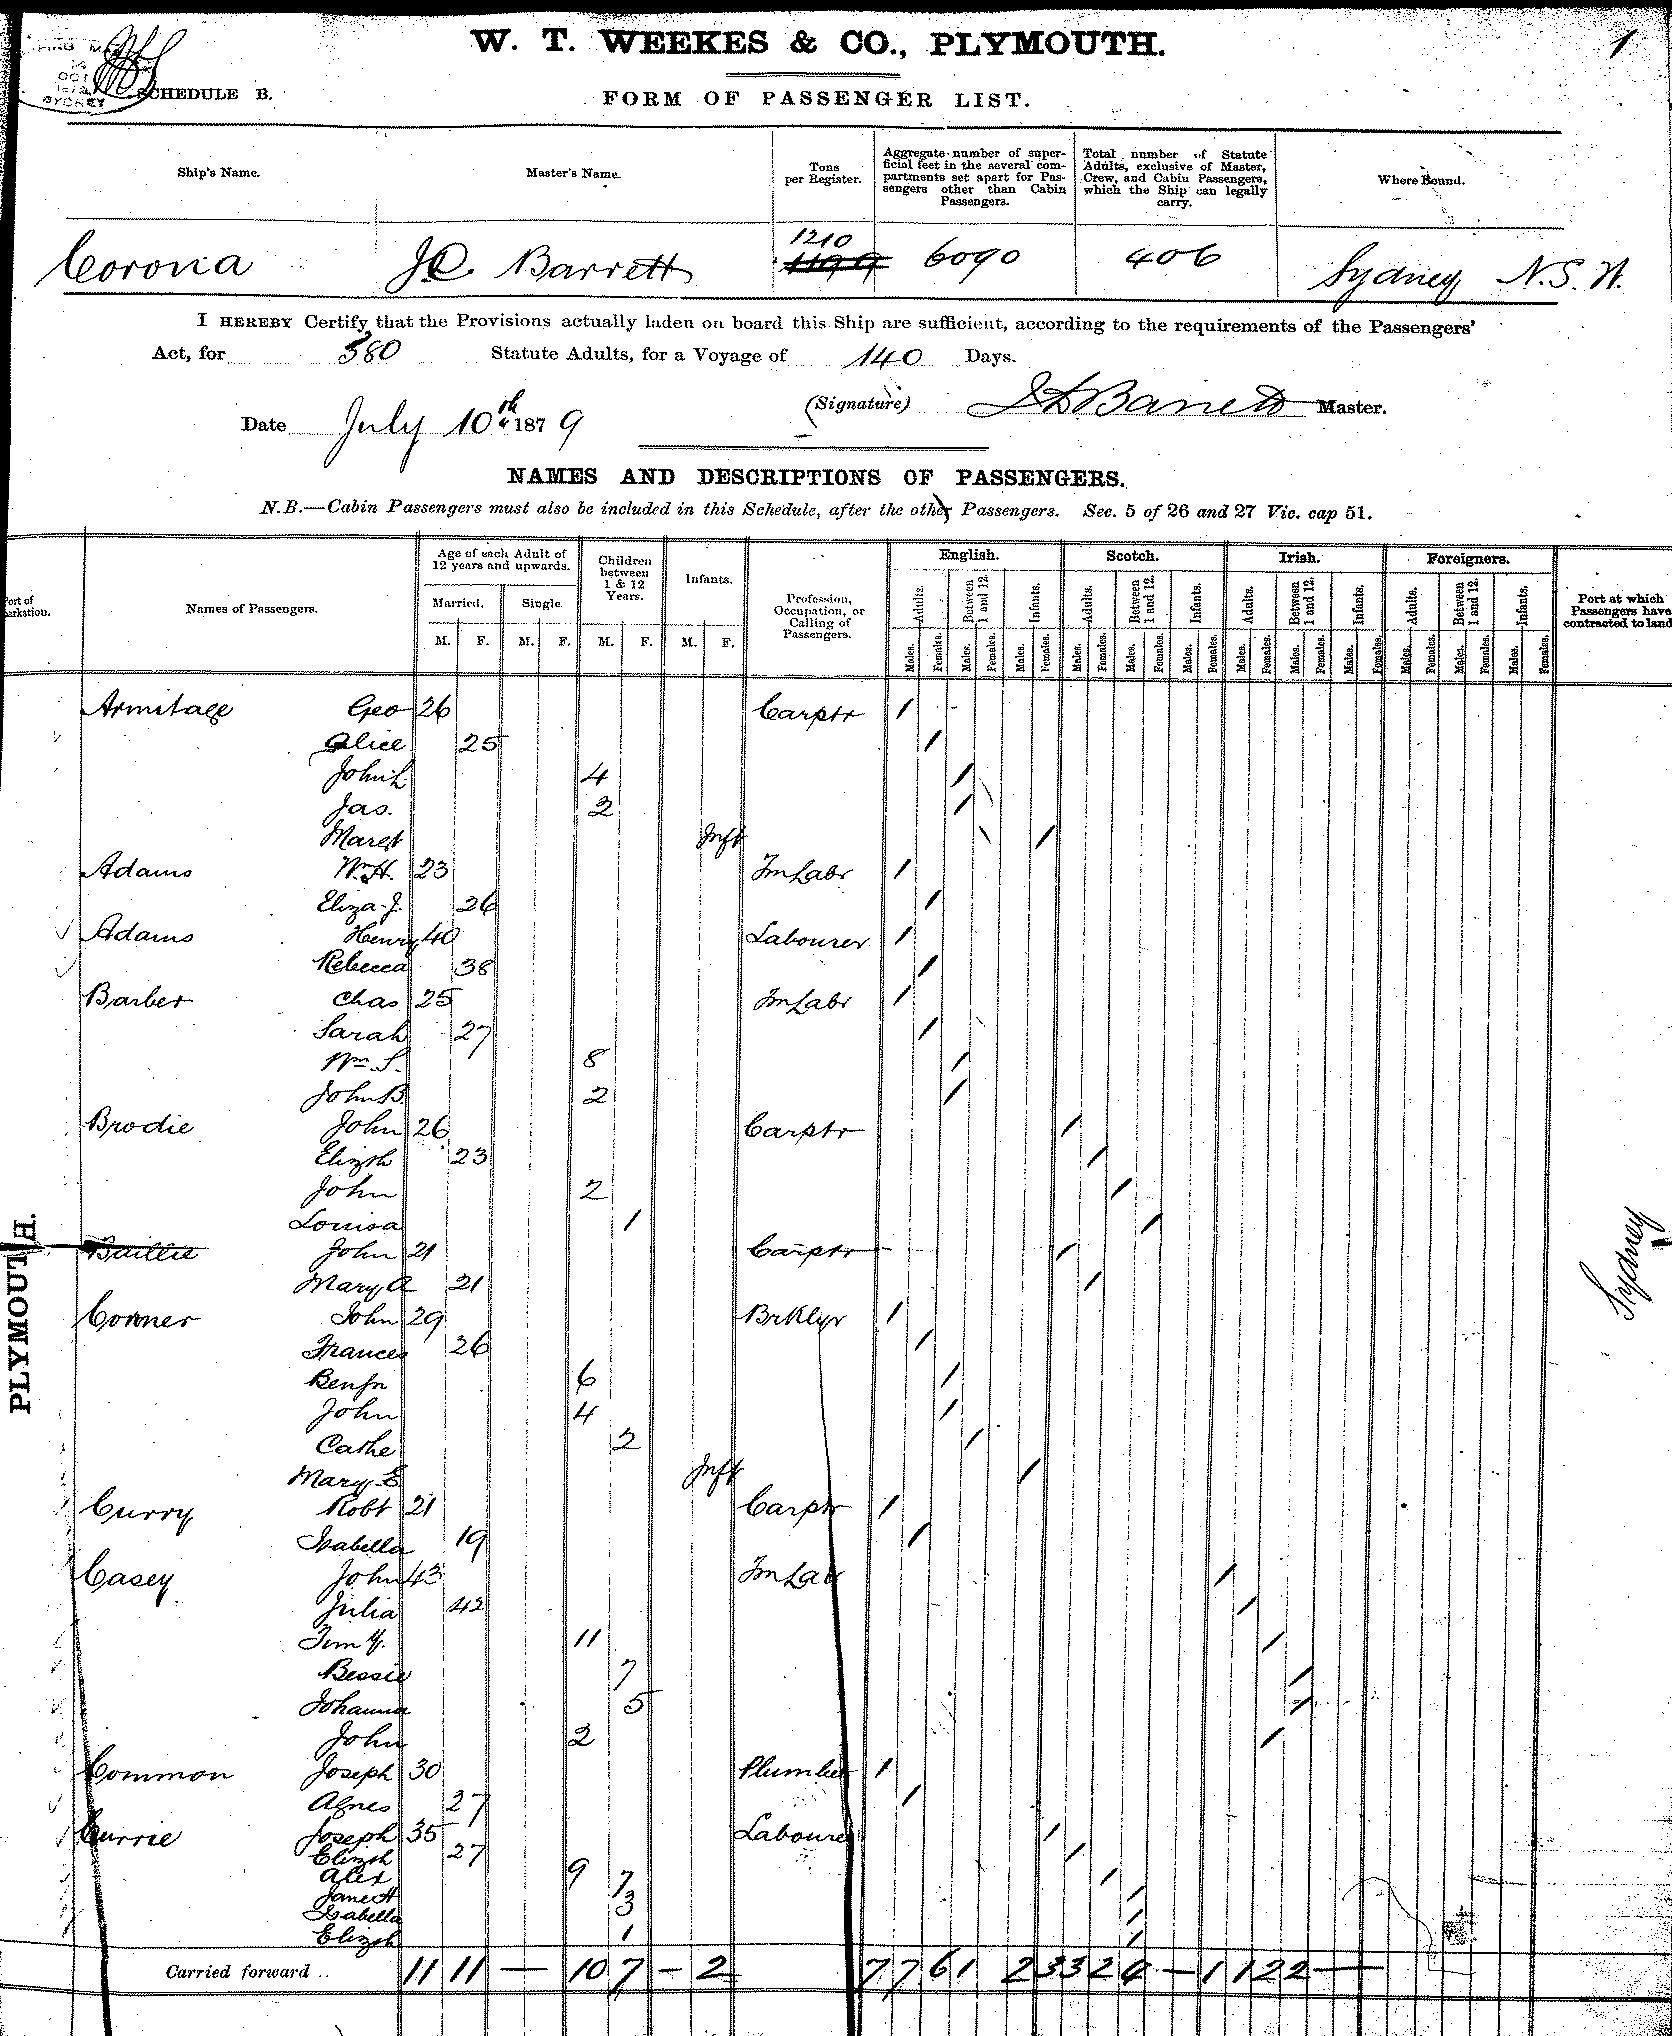 W. T. WEEKES & CO., PLYMOUTH.
1
OCT
SYDNEY
SCHEDULE B.
FORM OF PASSENGER LIST.
Ship's Name.
Master's Name.
Tons per Register.
Aggregate number of superficial feet in the several compartments set apart for Passengers other than Cabin Passengers.
Total number of Statute Adults, exclusive of Master, Crew, and Cabin Passengers, which the Ship can legally carry.
Where Bound.
Corona J.C. Barrett 1210 1199 6090 406 Sydney N.S.W.
I HEREBY Certify that the Provisions actually laden on board this Ship are sufficient, according to the requirements of the Passengers'
Act, for 380 Statute Adults, for a Voyage of 140 Days.
(Signature) Barrett Master.
Date July 10th 1879
NAMES AND DESCRIPTIONS OF PASSENGERS.
N.B.—Cabin Passengers must also be included in this Schedule, after the other Passengers. Sec. 5 of 26 and 27 Vic. cap 51.
Port of
Names of Passengers.
Age of each Adult of 12 years and upwards.
Married. Single
Children between 1 & 12 Years.
Infants.
M. F. M. F. M. F. M. F.
Profession, Occupation, or Calling of Passengers.
English. Scotch. Irish. Foreigners.
Adults. Between 1 and 12. Infants. Adults. Between 1 and 12. Infants. Adults. Between 1 and 12. Infants. Adults. Between 1 and 12. Infants.
Males. Females. Males. Females. Males. Females. Males. Females. Males. Females. Males. Females. Males. Females. Males. Females. Males. Females. Males. Females. Males. Females. Males. Females.
Port at which Passengers have contracted to land
Armitage Geo 26 Carptr /
Alice 25 /
John L 4 /
Jas. 2 /
Margt Inft /
Adams Wm H. 23 Fm Labr /
Eliza J. 26 /
Adams Henry 40 Labourer /
Rebecca 38 /
Barber Chas 25 Fm Labr /
Sarah 27 /
Wm S. 8 /
John B 2 /
Brodie John 26 Carptr /
Elizth 23 /
John 2 /
Louisa 1 /
Baillie John 21 Carptr /
Mary A 21 /
Corner John 29 Brklyr /
Frances 26 /
Benjn 6 /
John 4 /
Cathe 2 /
Mary E Inft /
Curry Robt 21 Carptr /
Isabella 19 /
Casey John 43 Fm Labr /
Julia 42 /
Timy. 11 /
Bessie 7 /
Johanna 5 /
John 2 /
Common Joseph 30 Plumber /
Agnes 27 /
Currie Joseph 35 Labourer /
Elizth 27 /
Alex 9 /
Jane H 7 /
Isabella 3 /
Elizth 1 /
PLYMOUTH.
Sydney
Carried forward .. 11 11 — 10 7 — 2 7 7 6 1 2 3 3 2 4 — 1 1 2 2 —